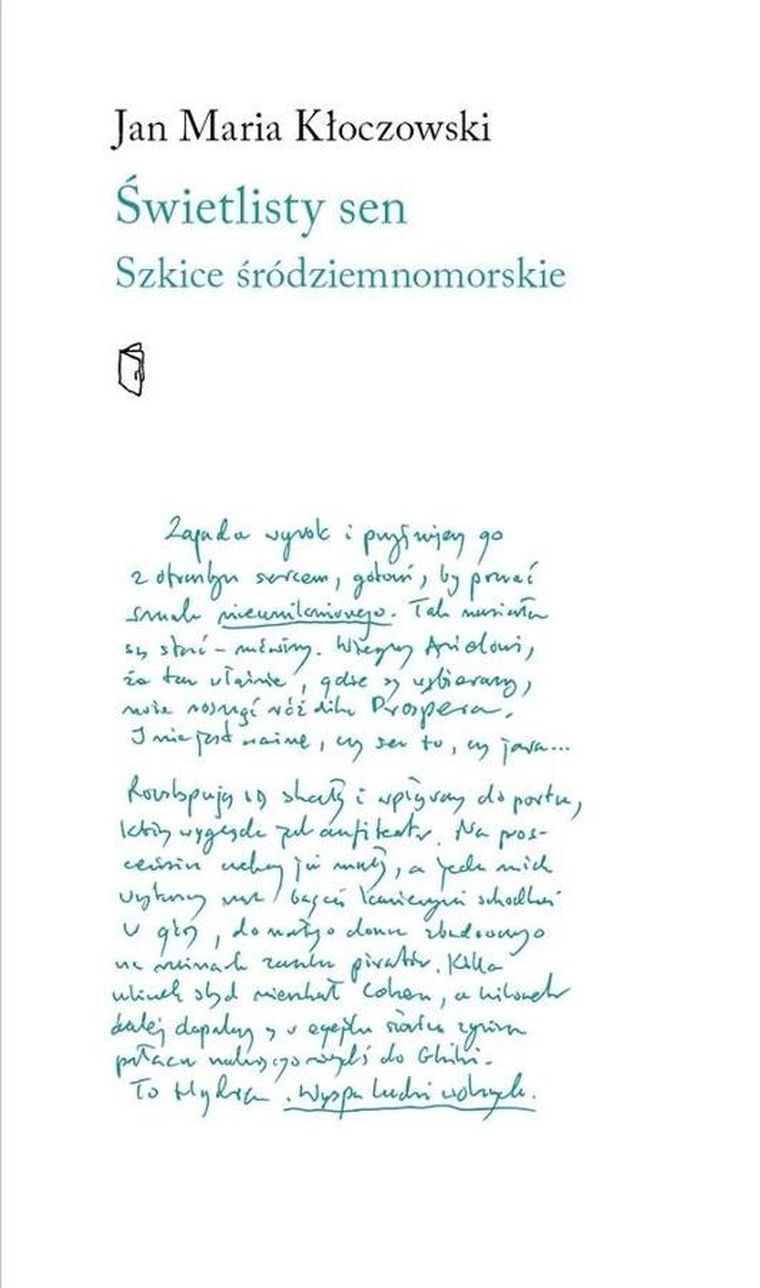 Jan Maria Kłoczowski
Świetlisty sen
Szkice śródziemnomorskie
Zapada wyrok i przyjmujemy go
z otwartym sercem, gotowi, by poznać
smak nieuniknionego. Tak musiało
się stać – mówimy. Wierzymy Arielowi,
że tam właśnie, gdzie się wybieramy,
może sięgać różdżka Prospera.
I nie jest ważne, czy sen to, czy jawa...
Rozstępują się skały i wpływamy do portu,
który wygląda jak amfiteatr. Na pros-
cenium czekają już muły, a jeden z nich
wytarga nasz bagaż kamiennymi schodkami
w górę, do małego domu zbudowanego
na ruinach zamku piratów. Kilka
uliczek stąd mieszkał Cohen, a kilometr
dalej dopalają się w upalnym świetle zgliszcza
pałacu należącego niegdyś do Ghiki.
To Hydra. Wyspa ludzi wolnych.